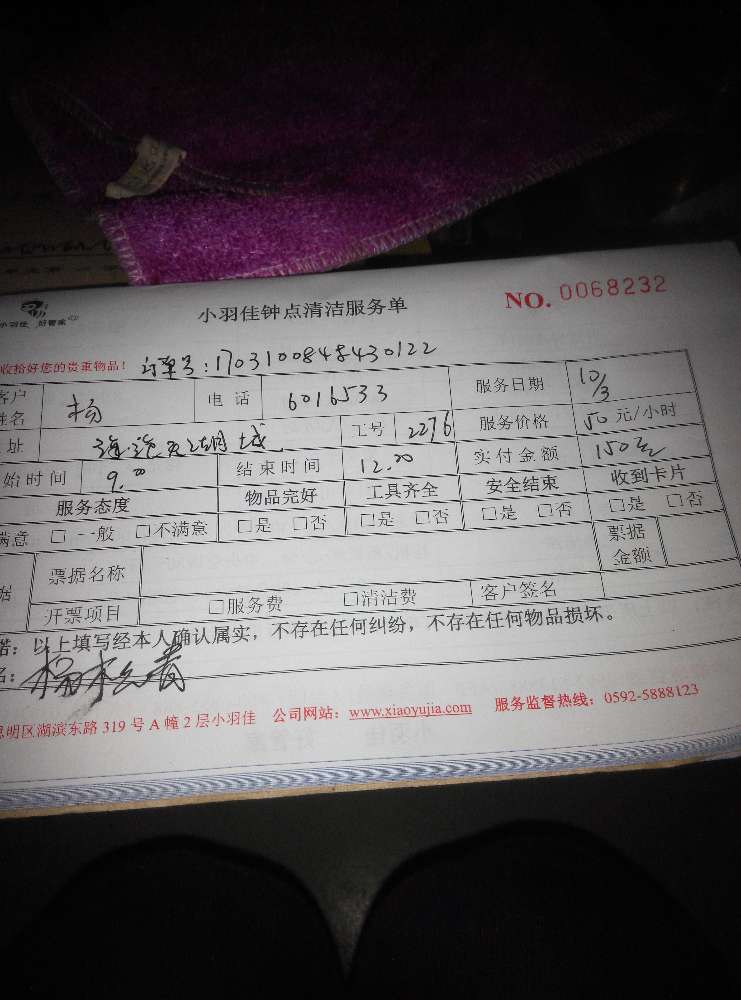 小羽佳 好管家
小羽佳钟点清洁服务单 NO. 0068232
收拾好您的贵重物品! 订单号:1703100848430122
客户姓名 杨 电话 6016533 服务日期 10/3
址 工号 2276 服务价格 50元/小时
始时间 9.00 结束时间 12.00 实付金额 150元
服务态度 物品完好 工具齐全 安全结束 收到卡片
满意 □一般 □不满意 □是 □否 □是 □否 □是 □否 □是 □否
据 票据名称 票据金额
开票项目 □服务费 □清洁费 客户签名
诺:以上填写经本人确认属实,不存在任何纠纷,不存在任何物品损坏。
名:
思明区湖滨东路319号A幢2层小羽佳 公司网站:www.xiaoyujia.com 服务监督热线:0592-5888123